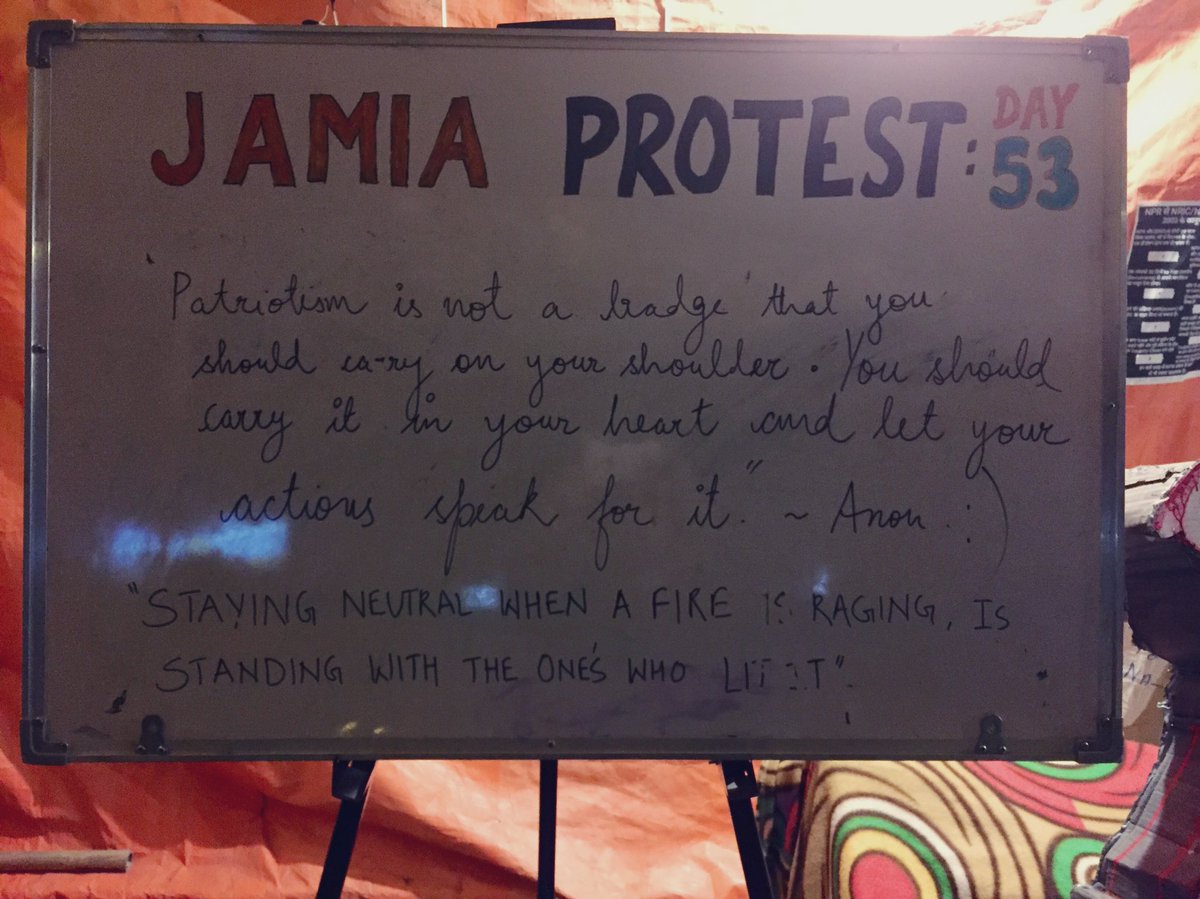 JAMIA PROTEST: DAY 53
Patriotism is not a badge that you
should carry on your shoulder. You should
carry it in your heart and let your
actions speak for it." ~ Anon :)
"STAYING NEUTRAL WHEN A FIRE IS RAGING, IS
STANDING WITH THE ONE'S WHO LIT IT"
NPR से NRIC/
2003 के